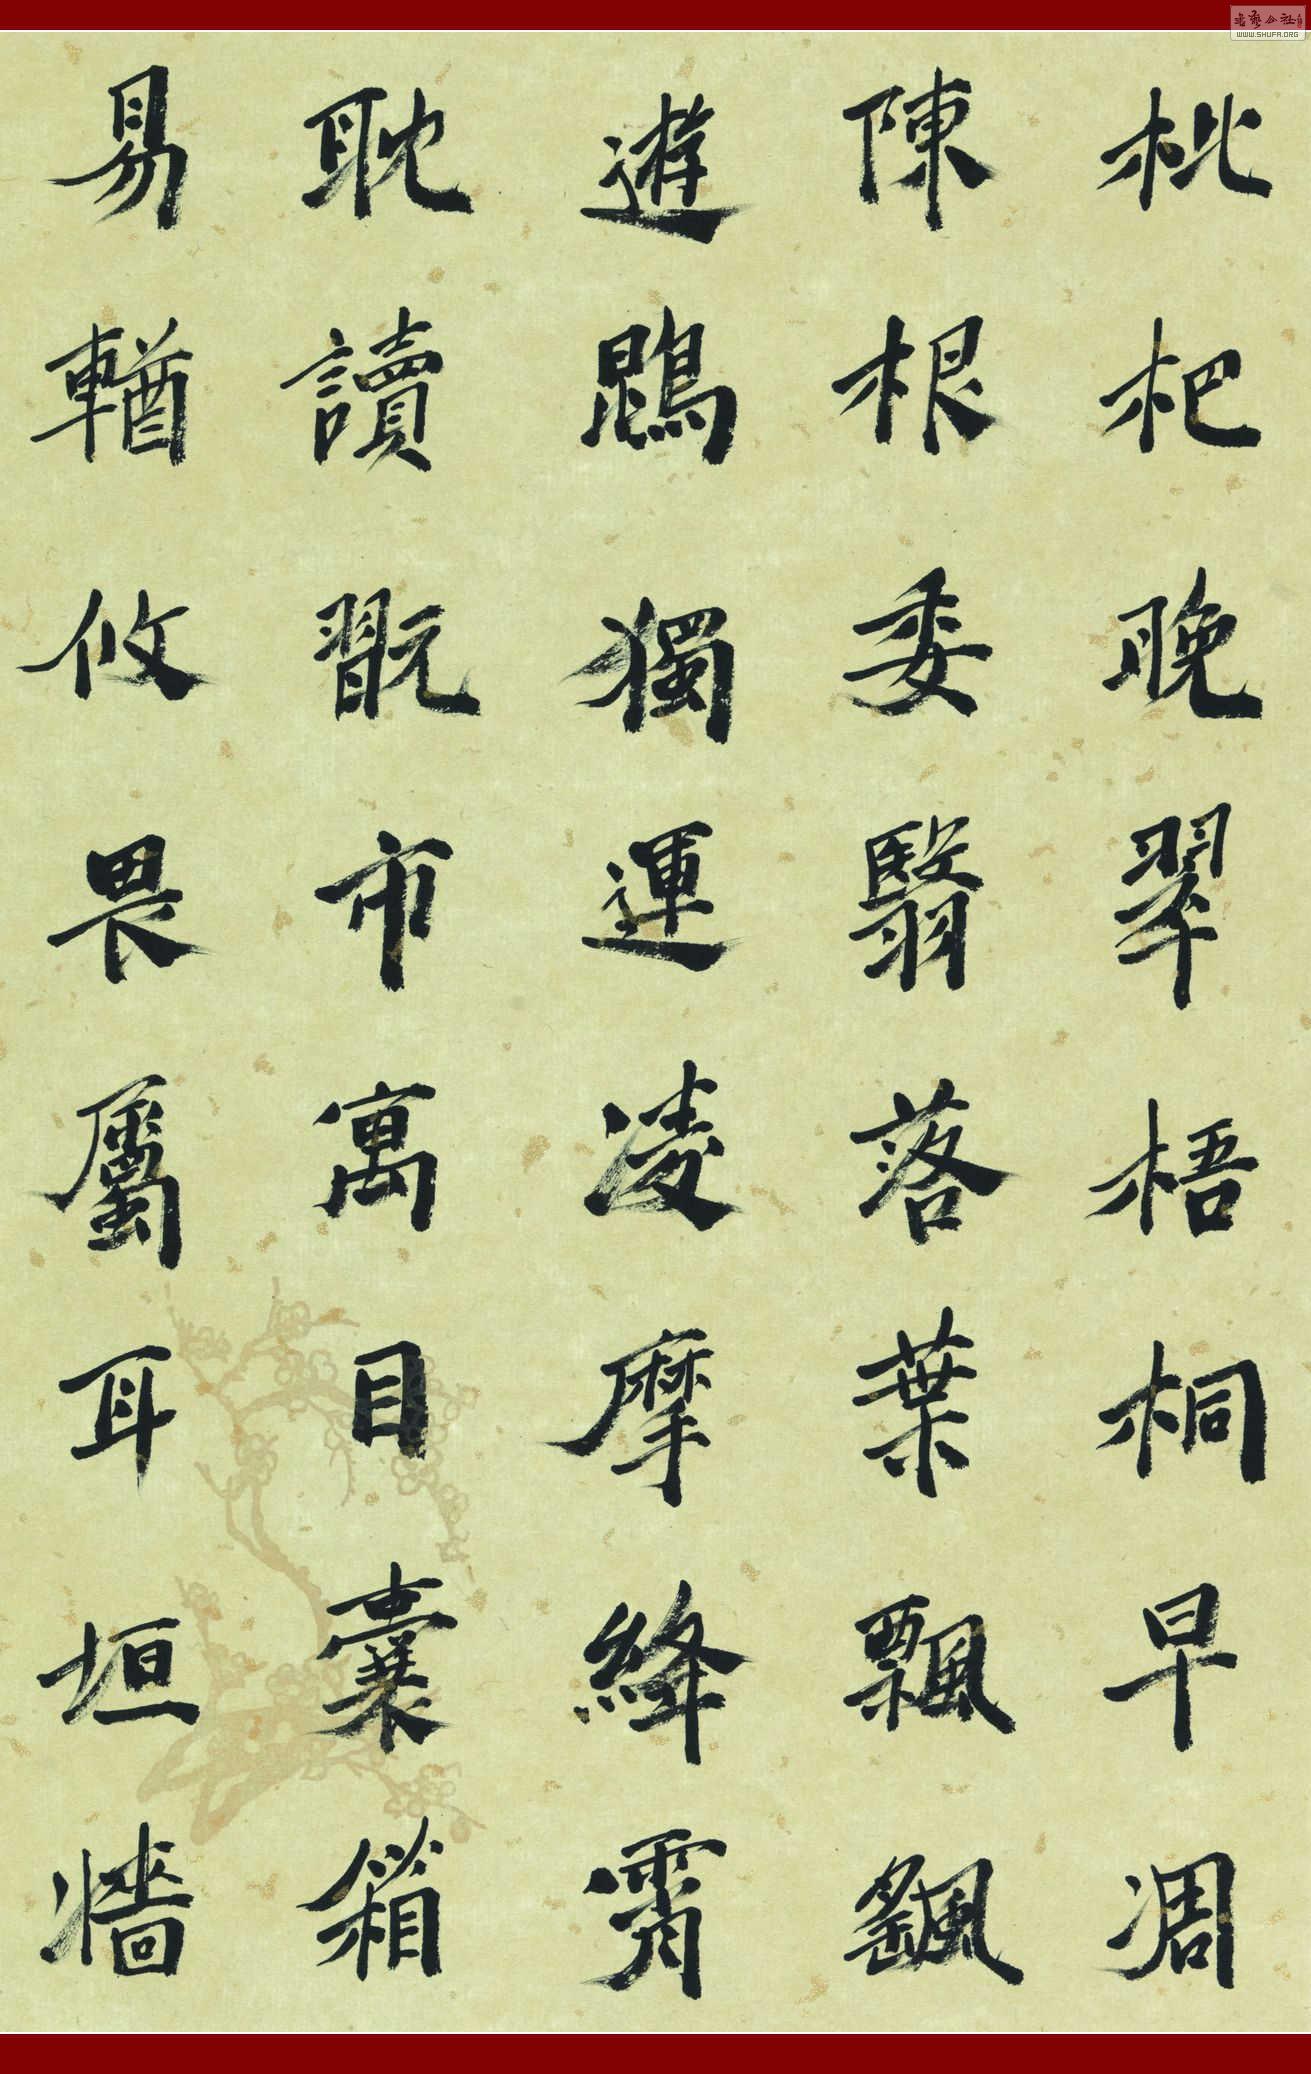 枇杷晚翠梧桐早凋
陳根委翳落葉飄颻
遊鵾獨運凌摩絳霄
耽讀翫市寓目囊箱
易輶攸畏屬耳垣牆
WWW.SHUFA.ORG